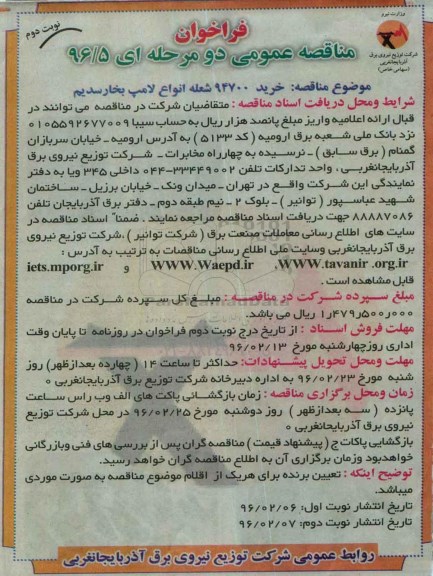 نوبت دوم
وزارت نیرو
شرکت توزیع نیروی برق
آذربایجانغربی
(سهامی خاص)
فراخوان
مناقصه عمومی دو مرحله ای ۹۶/۵
موضوع مناقصه: خرید ۹۴۷۰۰ شعله انواع لامپ بخارسدیم
شرایط ومحل دریافت اسناد مناقصه : متقاضیان شرکت در مناقصه می توانند در
قبال ارائه اعلامیه واریز مبلغ پانصد هزار ریال به حساب سیبا ۰۱۰۵۵۹۲۶۷۷۰۰۹
نزد بانک ملی شعبه برق ارومیه ( کد ۵۱۳۳ ) به آدرس ارومیه - خیابان سربازان
گمنام ( برق سابق ) - نرسیده به چهارراه مخابرات - شرکت توزیع نیروی برق
آذربایجانغربی ، واحد تدارکات تلفن ۳۳۴۴۹۰۰۲-۰۴۴ داخلی ۳۴۵ ویا به دفتر
نمایندگی این شرکت واقع در تهران - میدان ونک - خیابان برزیل - ساختمان
شهید عباسپور ( توانیر ) - بلوک ۲ - نیم طبقه دوم - دفتر برق آذربایجان تلفن
۸۸۸۸۷۰۸۶ جهت دریافت اسناد مناقصه مراجعه نمایند . ضمنا" اسناد مناقصه در
سایت های اطلاع رسانی معاملات صنعت برق ( شرکت توانیر ) ،شرکت توزیع نیروی
برق آذربایجانغربی وسایت ملی اطلاع رسانی مناقصات به ترتیب به آدرس :
WWW.tavanir .org.ir، WWW.Waepd.ir و iets.mporg.ir
قابل مشاهده است .
مبلغ سپرده شرکت در مناقصه : مبلغ کل سپرده شرکت در مناقصه
۱ر۴۷۹ر۵۰۰ر۰۰۰ ریال می باشد.
مهلت فروش اسناد : از تاریخ درج نوبت دوم فراخوان در روزنامه تا پایان وقت
اداری روزچهارشنبه مورخ ۹۶/۰۲/۱۳
مهلت ومحل تحویل پیشنهادات: حداکثر تا ساعت ۱۴ ( چهارده بعدازظهر) روز
شنبه مورخ ۹۶/۰۲/۲۳ به اداره دبیرخانه شرکت توزیع برق آذربایجانغربی ه
زمان ومحل برگزاری مناقصه : زمان بازگشائی پاکات های الف وب راس ساعت
پانزده ( سه بعدازظهر ) روز دوشنبه مورخ ۹۶/۰۲/۲۵ در محل شرکت توزیع
نیروی برق آذربایجانغربی ه
بازگشایی پاکات ج ( پیشنهاد قیمت ) مناقصه گران پس از بررسی های فنی وبازرگانی
خواهدبود وزمان برگزاری آن به اطلاع مناقصه گران خواهد رسید.
توضیح اینکه : تعیین برنده برای هریک از اقلام موضوع مناقصه به صورت موردی
میباشد.
تاریخ انتشار نوبت اول: ۹۶/۰۲/۰۶
تاریخ انتشار نوبت دوم: ۹۶/۰۲/۰۷
روابط عمومی شرکت توزیع نیروی برق آذربایجانغربی